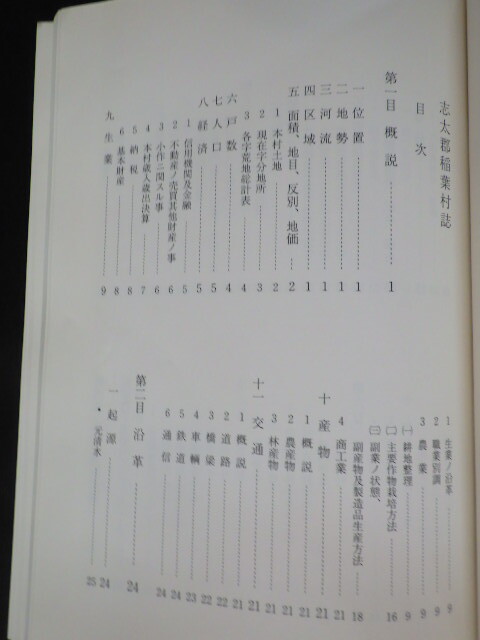 志太郡稲葉村誌
目次
第一目 概説………1
一 位置………1
二 地勢………1
三 河流………1
四 区域………1
五 面積、地目、反別、地価…2
1 本村土地………2
2 現在字分地所………3
3 各字荒地総計表………4
六 戸数………4
七 人口………5
八 経済………5
1 信用機関及金融………5
2 不動産ノ売買其他財産ノ事………6
3 小作ニ関スル事………6
4 本村歳入歳出決算………7
5 納税………8
6 基本財産………8
九 生業………9
1 生業ノ沿革………9
2 職業別調………9
3 農業………9
㈠ 耕地整理………9
㈡ 主要作物栽培方法………16
㈢ 副業ノ状態、
副産物及製造品生産方法………18
4 商工業………21
十 産物………21
1 概説………21
2 農産物………21
3 林産物………21
十一 交通………21
1 概説………21
2 道路………22
3 橋梁………22
4 車輛………23
5 鉄道………24
6 通信………24
第二目 沿革………24
一 起源………24
・元清水………25